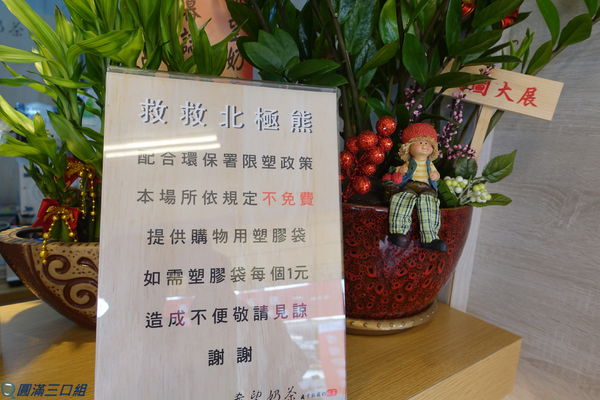 救救北極熊
配合環保署限塑政策
本場所依規定不免費
提供購物用塑膠袋
如需塑膠袋每個1元
造成不便敬請見諒
謝謝
奶茶
圖大展
圓滿三口組